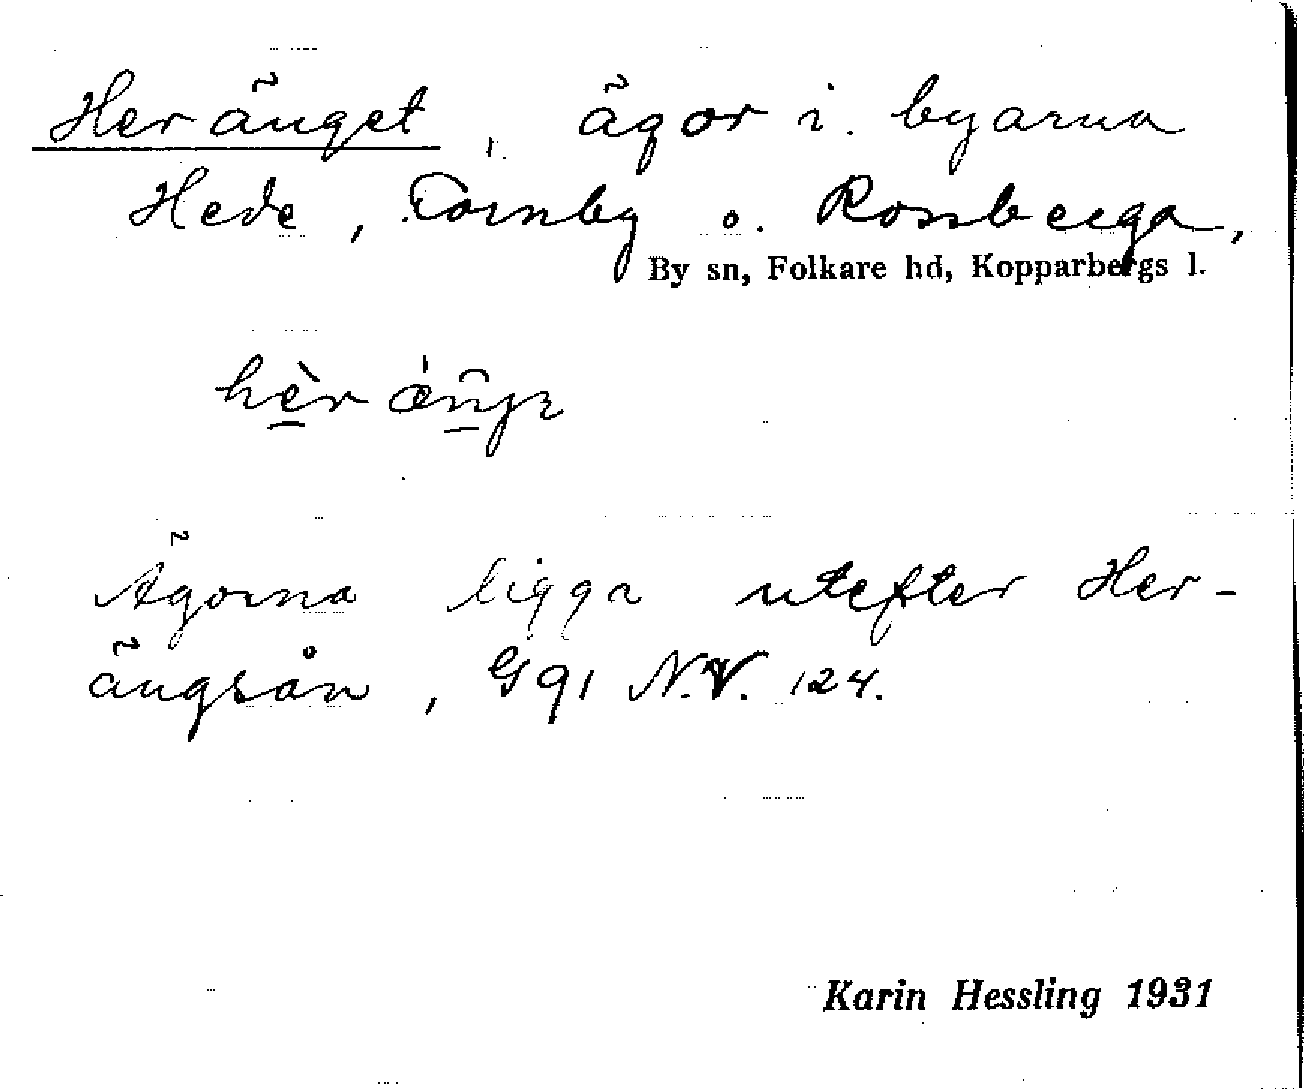 Heränget, ägor i byarna
Hede, Tornby o. Rossberga,
By sn, Folkare hd, Kopparbergs l.
Ägorna ligga utefter Her-
ängsån, G 91 N.V. 124.
Karin Hessling 1931